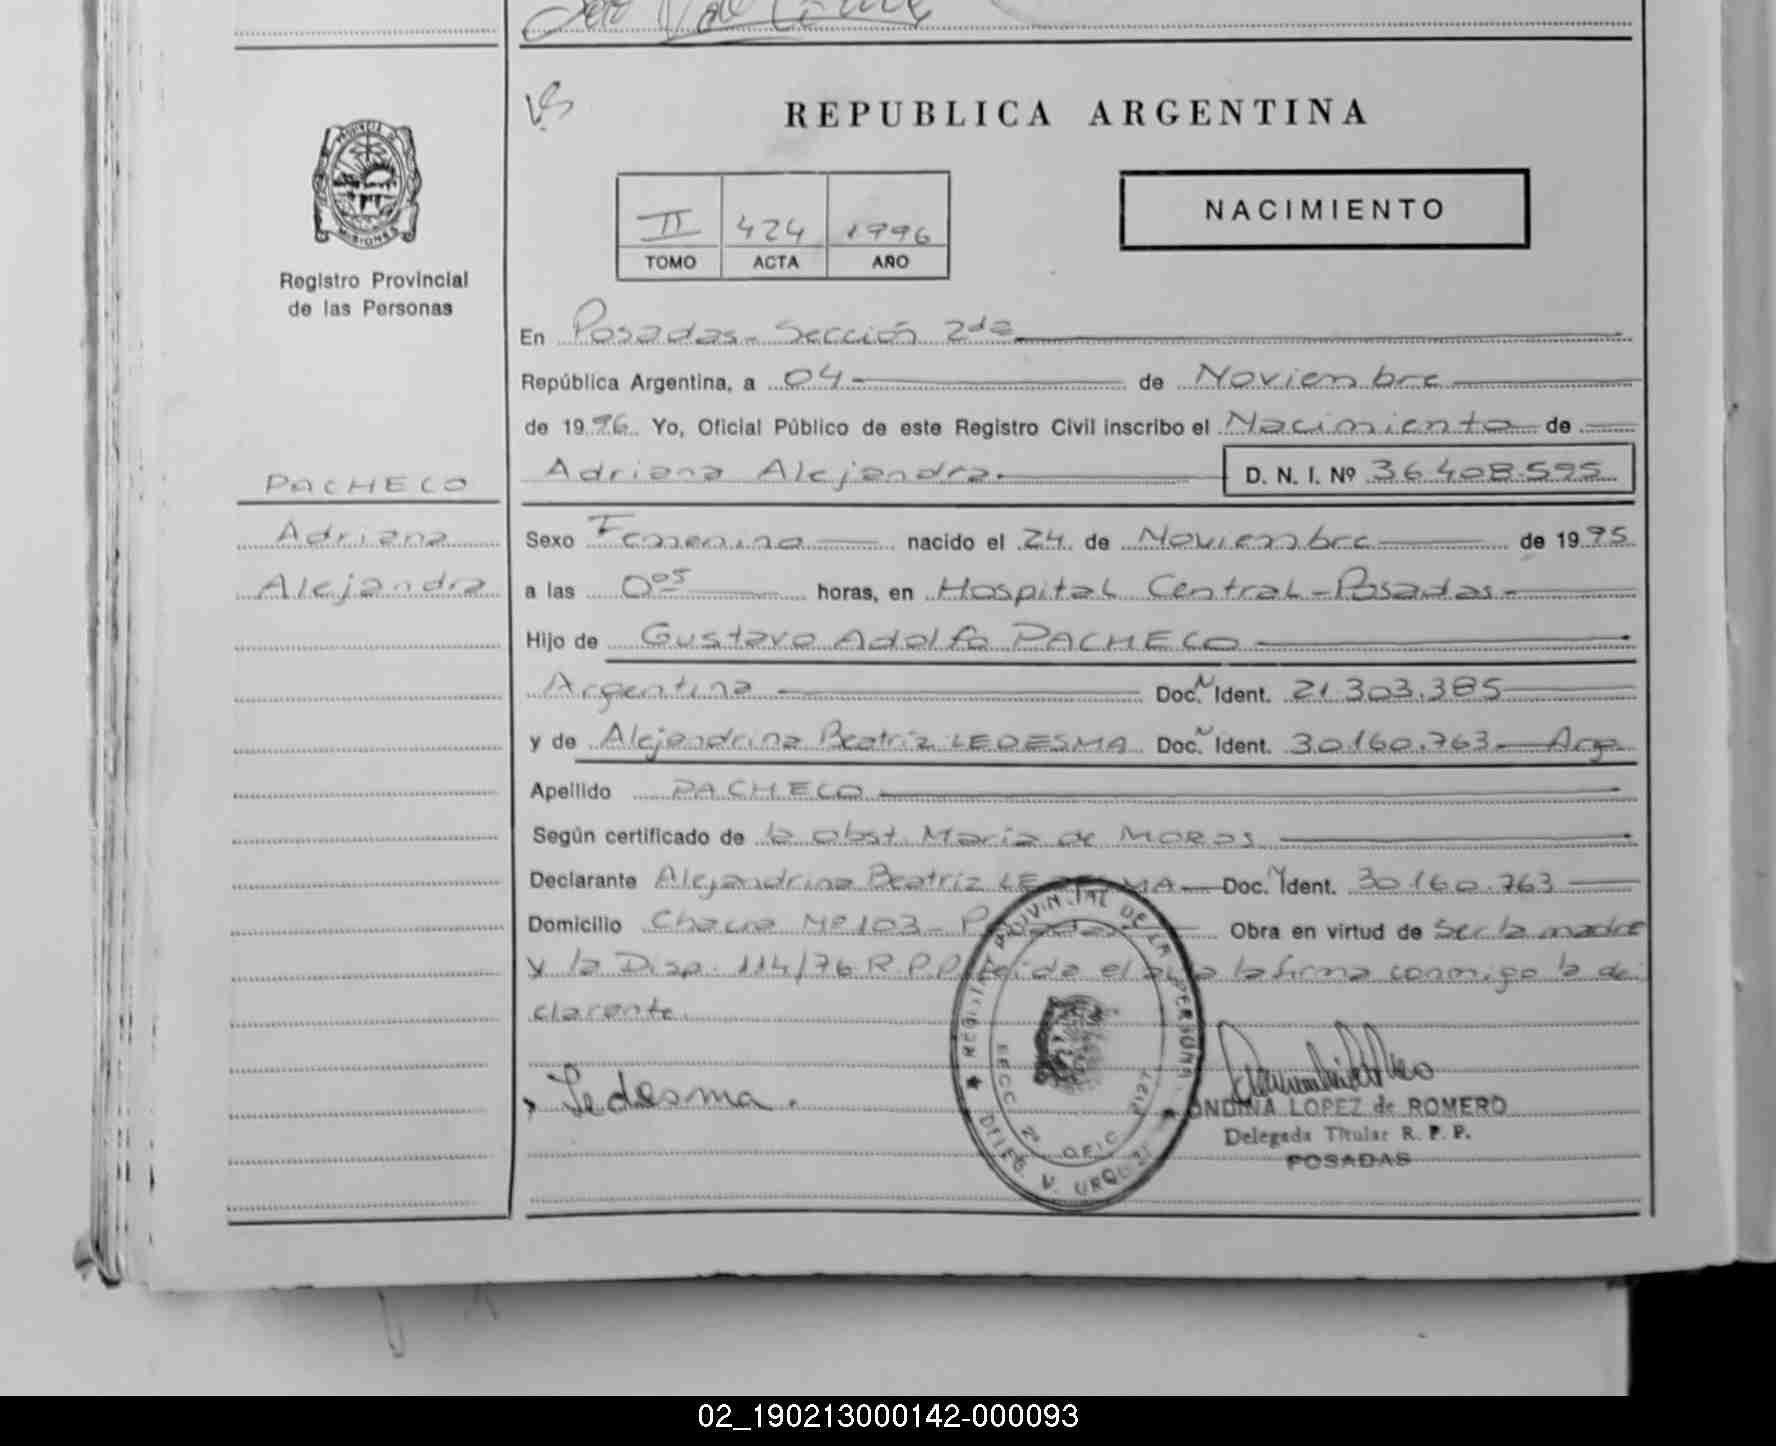 REPUBLICA ARGENTINA
PROVINCIA DE
MISIONES
Registro Provincial
de las Personas
NACIMIENTO
II 424 1996
TOMO ACTA AÑO
En Posadas - Sección 2da
República Argentina, a 04 de Noviembre
de 1996 Yo, Oficial Público de este Registro Civil inscribo el Nacimiento de
Adriana Alejandra. D. N. I. Nº 36.408.595
PACHECO
Adriana
Alejandra
Sexo Femenino nacido el 24 de Noviembre de 1995
a las 0 05 horas, en Hospital Central - Posadas -
Hijo de Gustavo Adolfo PACHECO
Argentina Doc. N Ident. 21.303.385
y de Alejandrina Beatriz LEDESMA Doc. N Ident. 30.160.763 - Arg.
Apellido PACHECO
Según certificado de la obst. Maria de MORAS
Declarante Alejandrina Beatriz LEDESMA Doc. N Ident. 30.160.763
Domicilio Chacra Nº 103 - Posadas Obra en virtud de ser la madre
y la Disp. 114/76 R.P.P. Leída el acta la firma conmigo la de
clarante.
Ledesma.
REGISTRO PROVINCIAL DE LAS PERSONAS
SECC 2ª OFIC
DELEG V. URQUIZA
ONDINA LOPEZ de ROMERO
Delegada Titular R. P. P.
POSADAS
02_190213000142-000093